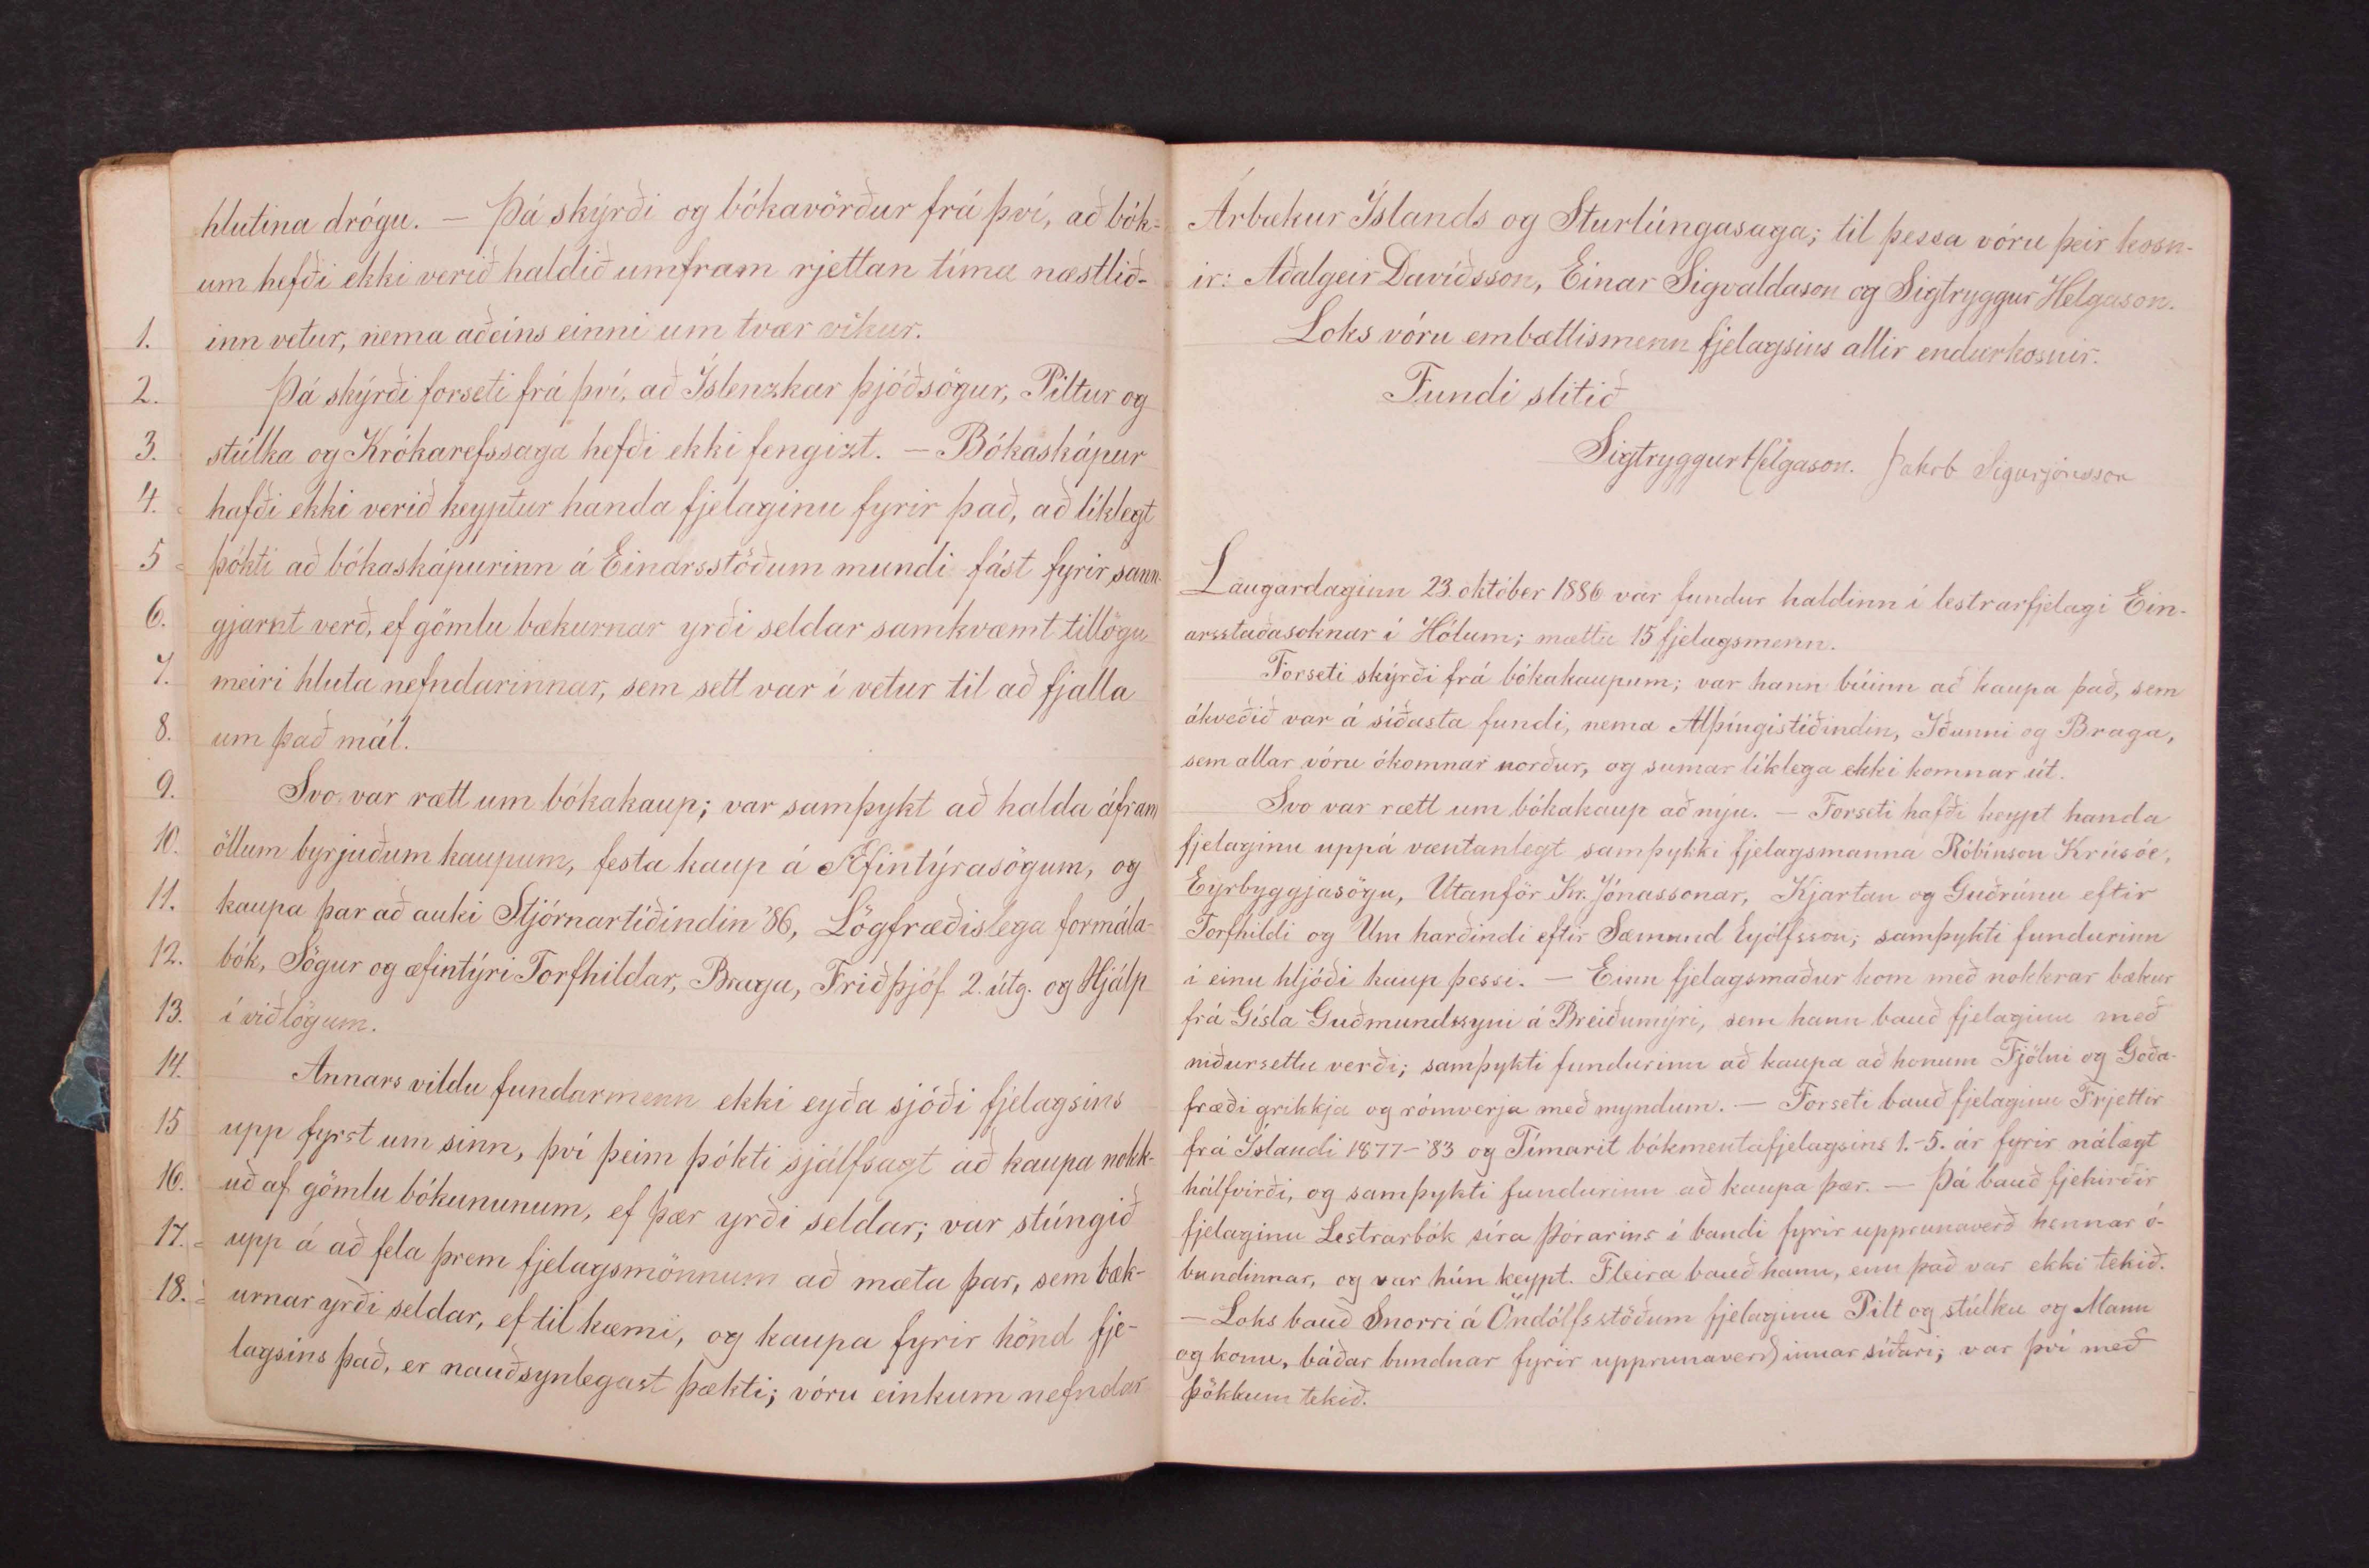 hlutina drógu. — Þá skýrði og bókavörður frá því, að bók-
um hefði ekki verið haldið umfram rjettan tíma næstlið-
1. inn vetur, nema aðeins einni um tvær vikur.
2. Þá skýrði forseti frá því, að Íslenzkar þjóðsögur, Piltur og
3. stúlka og Krókarefssaga hefði ekki fengizt. — Bókaskápur
4. hafði ekki verið keyptur handa fjelaginu fyrir það, að líklegt
5 þókti að bókaskápurinn á Einarsstöðum mundi fást fyrir sann-
6. gjarnt verð, ef gömlu bækurnar yrði seldar samkvæmt tillögu
7. meiri hluta nefndarinnar, sem sett var í vetur til að fjalla
8. um það mál.
9. Svo var rætt um bókakaup; var samþykt að halda áfram
10. öllum byrjuðum kaupum, festa kaup á Æfintýrasögum, og
11. kaupa þar að auki Stjórnartíðindin '86, Lögfræðislega formála-
12. bók, Sögur og æfintýri Torfhildar, Braga, Friðþjóf 2. útg. og Hjálp
13. í viðlögum.
14. Annars vildu fundarmenn ekki eyða sjóði fjelagsins
15 upp fyrst um sinn, því þeim þókti sjálfsagt að kaupa nokk-
16. uð af gömlu bókununum, ef þær yrði seldar; var stúngið
17. upp á að fela þrem fjelagsmönnum að mæta þar, sem bæk-
18. urnar yrði seldar, ef til kæmi, og kaupa fyrir hönd fje-
lagsins það, er nauðsynlegast þækti; vóru einkum nefndar
Árbækur Íslands og Sturlúngasaga; til þessa vóru þeir kosn-
ir: Aðalgeir Davíðsson, Einar Sigvaldason og Sigtryggur Helgason.
Loks vóru embættismenn fjelagsins allir endurkosnir.
Fundi slitið
Sigtryggur Helgason. Jakob Sigurjónsson
Laugardaginn 23. október 1886 var fundur haldinn í lestrarfjelagi Ein-
arsstaðasóknar í Hólum; mættu 15 fjelagsmenn.
Forseti skýrði frá bókakaupum; var hann búinn að kaupa það, sem
ákveðið var á síðasta fundi, nema Alþíngistíðindin, Iðunni og Braga,
sem allar vóru ókomnar norður, og sumar líklega ekki komnar út.
Svo var rætt um bókakaup að nýju. — Forseti hafði keypt handa
fjelaginu uppá væntanlegt samþykki fjelagsmanna Róbínson Krúsóe,
Eyrbyggjasögu, Utanför Kr. Jónassonar, Kjartan og Guðrúnu eftir
Torfhildi og Um harðindi eftir Sæmund Eyólfsson; samþykti fundurinn
í einu hljóði kaup þessi. — Einn fjelagsmaður kom með nokkrar bækur
frá Gísla Guðmundssyni á Breiðumýri, sem hann bauð fjelaginu með
niðursettu verði; samþykti fundurinn að kaupa að honum Fjölni og Goða-
fræði grikkja og rómverja með myndum. — Forseti bauð fjelaginu Frjettir
frá Íslandi 1877–'83 og Tímarit bókmentafjelagsins 1.–5. ár fyrir nálægt
hálfvirði, og samþykti fundurinn að kaupa þær. — Þá bauð fjehirðir
fjelaginu Lestrarbók síra Þórarins í bandi fyrir upprunaverð hennar ó-
bundinnar, og var hún keypt. Fleira bauð hann, enn það var ekki tekið.
— Loks bauð Snorri á Öndólfsstöðum fjelaginu Pilt og stúlku og Mann
og konu, báðar bundnar fyrir upprunaverð innar síðari; var því með
þökkum tekið.